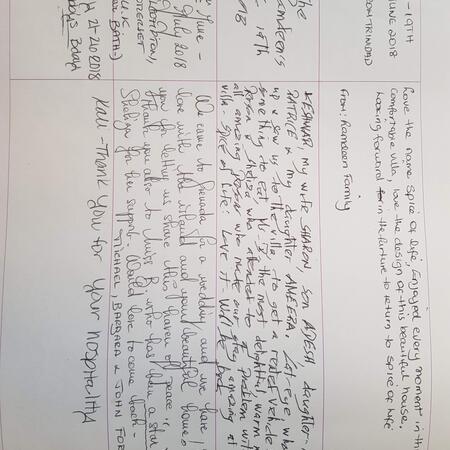 - 19TH
JUNE 2018
FROM TRINIDAD
Love the name spice of life, Enjoyed every moment in this
comfortable villa, love the design of this beautiful house.
Looking forward in the furture to return to spice of life
FROM: Ramdeen Family
The
Ramdeen's
19th
KESHWAR, my wife SHARON, son ADESH, daughter-
PATRICE & my daughter AMEERA. Cat-eye, who
up & saw us to the villa, to get a rented vehicle
something to eat, Ms. B, the most delightful, warm
Person & Sheliza who attended to a problem wit
all amazing Person who made our stay amazing at
villa - Spice of Life: Love it will be back
June -
July 2018
SOMERSET
U.K
BATH-)
We came to Grenada for a wedding and we have
love with the island and your beautiful home!
you for letting us share this haven of peace.
Thank you also to Miss B, who has been a star
for her support. Would love to come back -
MICHAEL, BARBARA & JOHN FOR
2018
Bday
Kali - Thank you for your hospitality